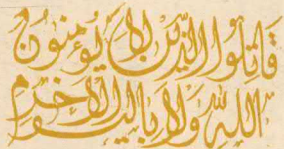 قَاتِلُوا الَّذِينَ لَا يُؤْمِنُونَ
بِاللَّهِ وَلَا بِالْيَوْمِ الْآخِرِ